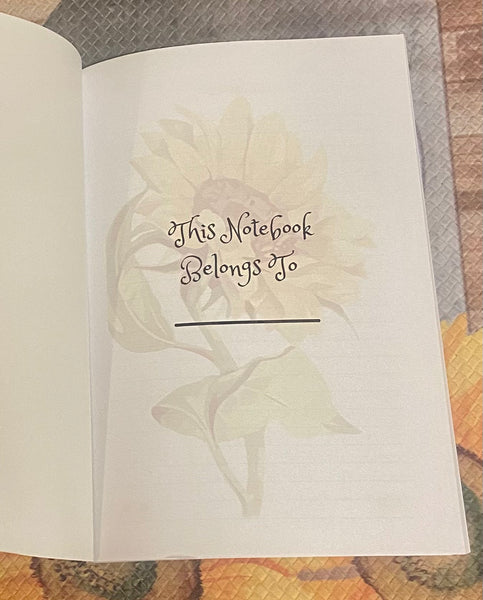 This Notebook
Belongs To